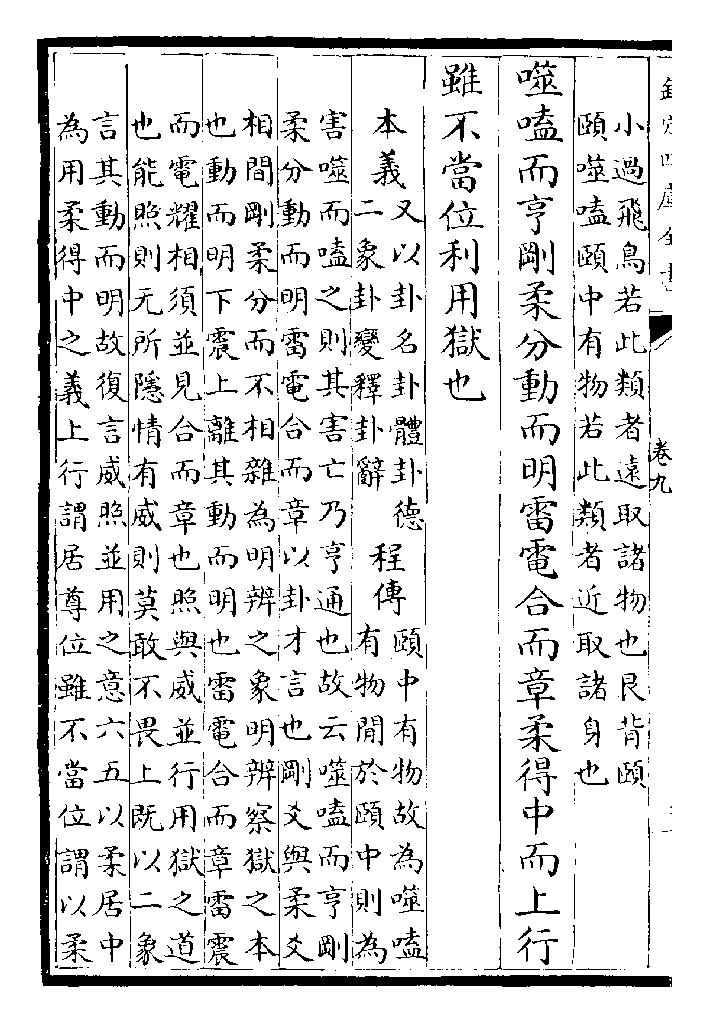 欽定四庫全書 卷九
小過飛鳥若此類者遠取諸物也艮背頤
頤噬嗑頤中有物若此類者近取諸身也
噬嗑而亨剛柔分動而明雷電合而章柔得中而上行
雖不當位利用獄也
本義 又以卦名卦體卦德
二象卦變釋卦辭
程傳 頤中有物故為噬嗑
有物閒於頤中則為
害噬而嗑之則其害亡乃亨通也故云噬嗑而亨剛
柔分動而明雷電合而章以卦才言也剛爻與柔爻
相間剛柔分而不相雜為明辨之象明辨察獄之本
也動而明下震上離其動而明也雷電合而章雷震
而電耀相須並見合而章也照與威並行用獄之道
也能照則无所隱情有威則莫敢不畏上既以二象
言其動而明故復言威照並用之意六五以柔居中
為用柔得中之義上行謂居尊位雖不當位謂以柔